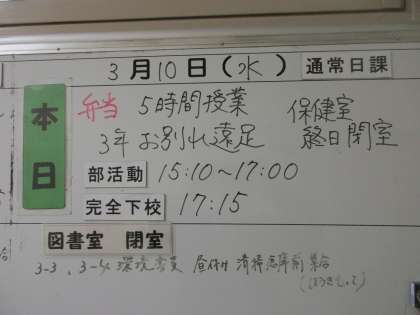 3月10日（水） 通常日課
本日
弁当 5時間授業 保健室
3年 お別れ遠足 終日閉室
部活動 15:10～17:00
完全下校 17:15
図書室 閉室
3-3、3-4 環境委員 昼休み 清掃 集合